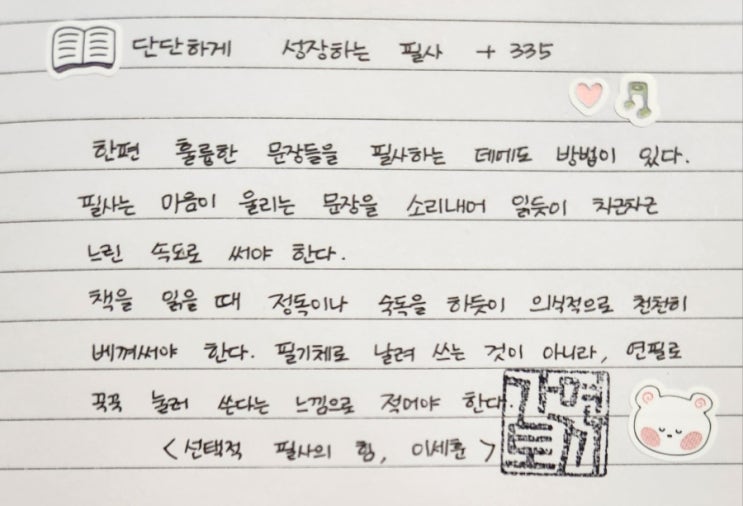 단단하게 성장하는 필사 + 335
한편 훌륭한 문장들을 필사하는 데에도 방법이 있다.
필사는 마음이 울리는 문장을 소리내어 읽듯이 차근차근
느린 속도로 써야 한다.
책을 읽을 때 정독이나 숙독을 하듯이 의식적으로 천천히
베껴써야 한다. 필기체로 날려 쓰는 것이 아니라, 연필로
꾹꾹 눌러 쓴다는 느낌으로 적어야 한다.
<선택적 필사의 힘, 이세훈>
가면
토끼